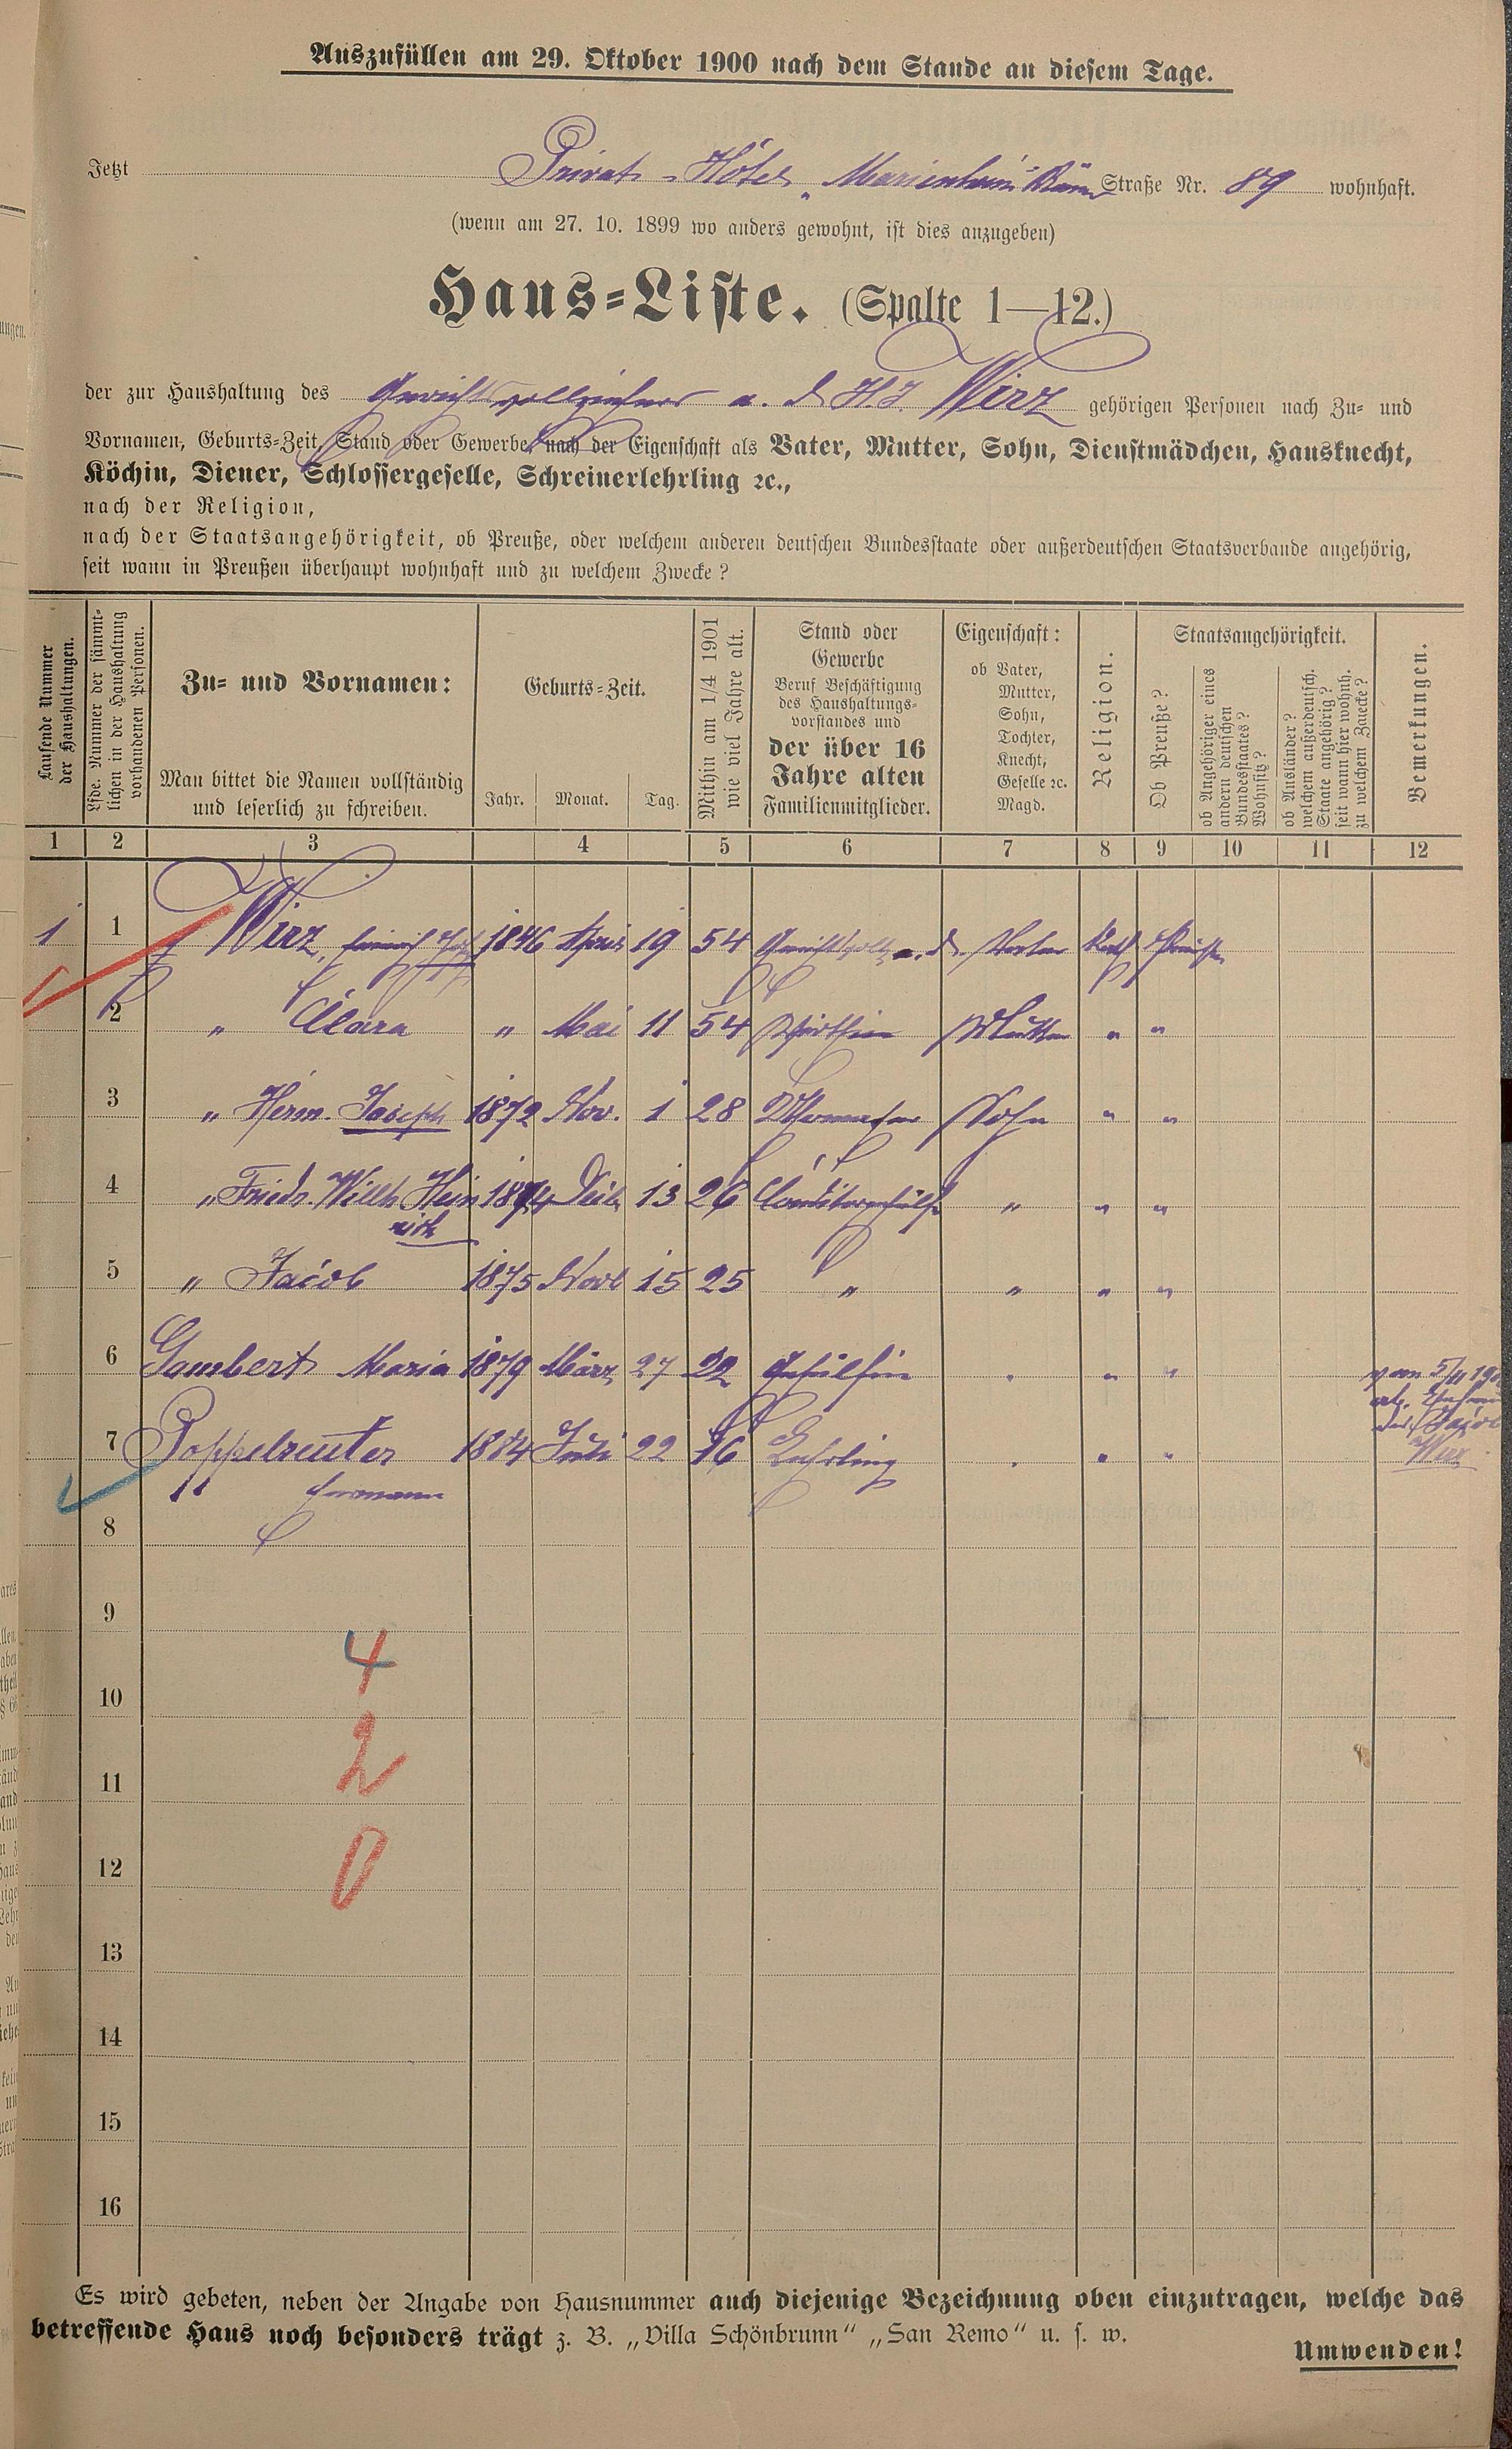 Auszufüllen am 29. Oktober 1900 nach dem Stande an diesem Tage.
Jetzt Privat-Hôtel „Marienheim" Straße Nr. 89 wohnhaft.
(wenn am 27. 10. 1899 wo anders gewohnt, ist dies anzugeben)
Haus-Liste. (Spalte 1—12.)
der zur Haushaltung des Gerichtsvollziehers a. d. H.J. Wirz gehörigen Personen nach Zu- und
Vornamen, Geburts-Zeit, Stand oder Gewerbe, nach der Eigenschaft als Vater, Mutter, Sohn, Dienstmädchen, Hausknecht,
Köchin, Diener, Schlossergeselle, Schreinerlehrling ꝛc.,
nach der Religion,
nach der Staatsangehörigkeit, ob Preuße, oder welchem anderen deutschen Bundesstaate oder außerdeutschen Staatsverbande angehörig,
seit wann in Preußen überhaupt wohnhaft und zu welchem Zwecke?
Laufende Nummer
der Haushaltungen.
Lfde. Nummer der sämmt-
lichen in der Haushaltung
vorhandenen Personen.
Zu- und Vornamen:
Man bittet die Namen vollständig
und leserlich zu schreiben.
Geburts-Zeit.
Jahr. Monat. Tag.
Mithin am 1/4 1901
wie viel Jahre alt.
Stand oder
Gewerbe
Beruf Beschäftigung
des Haushaltungs-
vorstandes und
der über 16
Jahre alten
Familienmitglieder.
Eigenschaft:
ob Vater,
Mutter,
Sohn,
Tochter,
Knecht,
Geselle ꝛc.
Magd.
Religion.
Staatsangehörigkeit.
Ob Preuße?
ob Angehöriger eines
andern deutschen
Bundesstaates?
Wohnsitz?
ob Ausländer?
welchem außerdeutsch.
Staate angehörig?
seit wann hier wohnh.
zu welchem Zwecke?
Bemerkungen.
1 2 3 4 5 6 7 8 9 10 11 12
1 1 Wirz, Heinrich Jos. 1846 April 19 54 Gerichtsvollz. a. d. Vater Kath Preuße
2 " Clara " Mai 11 54 Wirthin Mutter " "
3 " Herm. Joseph 1872 Nov. 1 28 Sohn " "
4 " Friedr. Willh. Hein 1874 Dez. 13 26 Conditorgehülfe " " "
rich
5 " Jacob 1875 Novb 15 25 " " " "
6 Gambert Maria 1879 März 27 22 Gehülfin " " "
vom 5/11 190
als Ehefrau
des Jacob
Wirz
7 Poppelreuter 1884 Juli 22 16 Lehrling " " "
Hermann
8
9
4
10
2
11
0
12
13
14
15
16
Es wird gebeten, neben der Angabe von Hausnummer auch diejenige Bezeichnung oben einzutragen, welche das
betreffende Haus noch besonders trägt z. B. „Villa Schönbrunn" „San Remo" u. s. w.
Umwenden!